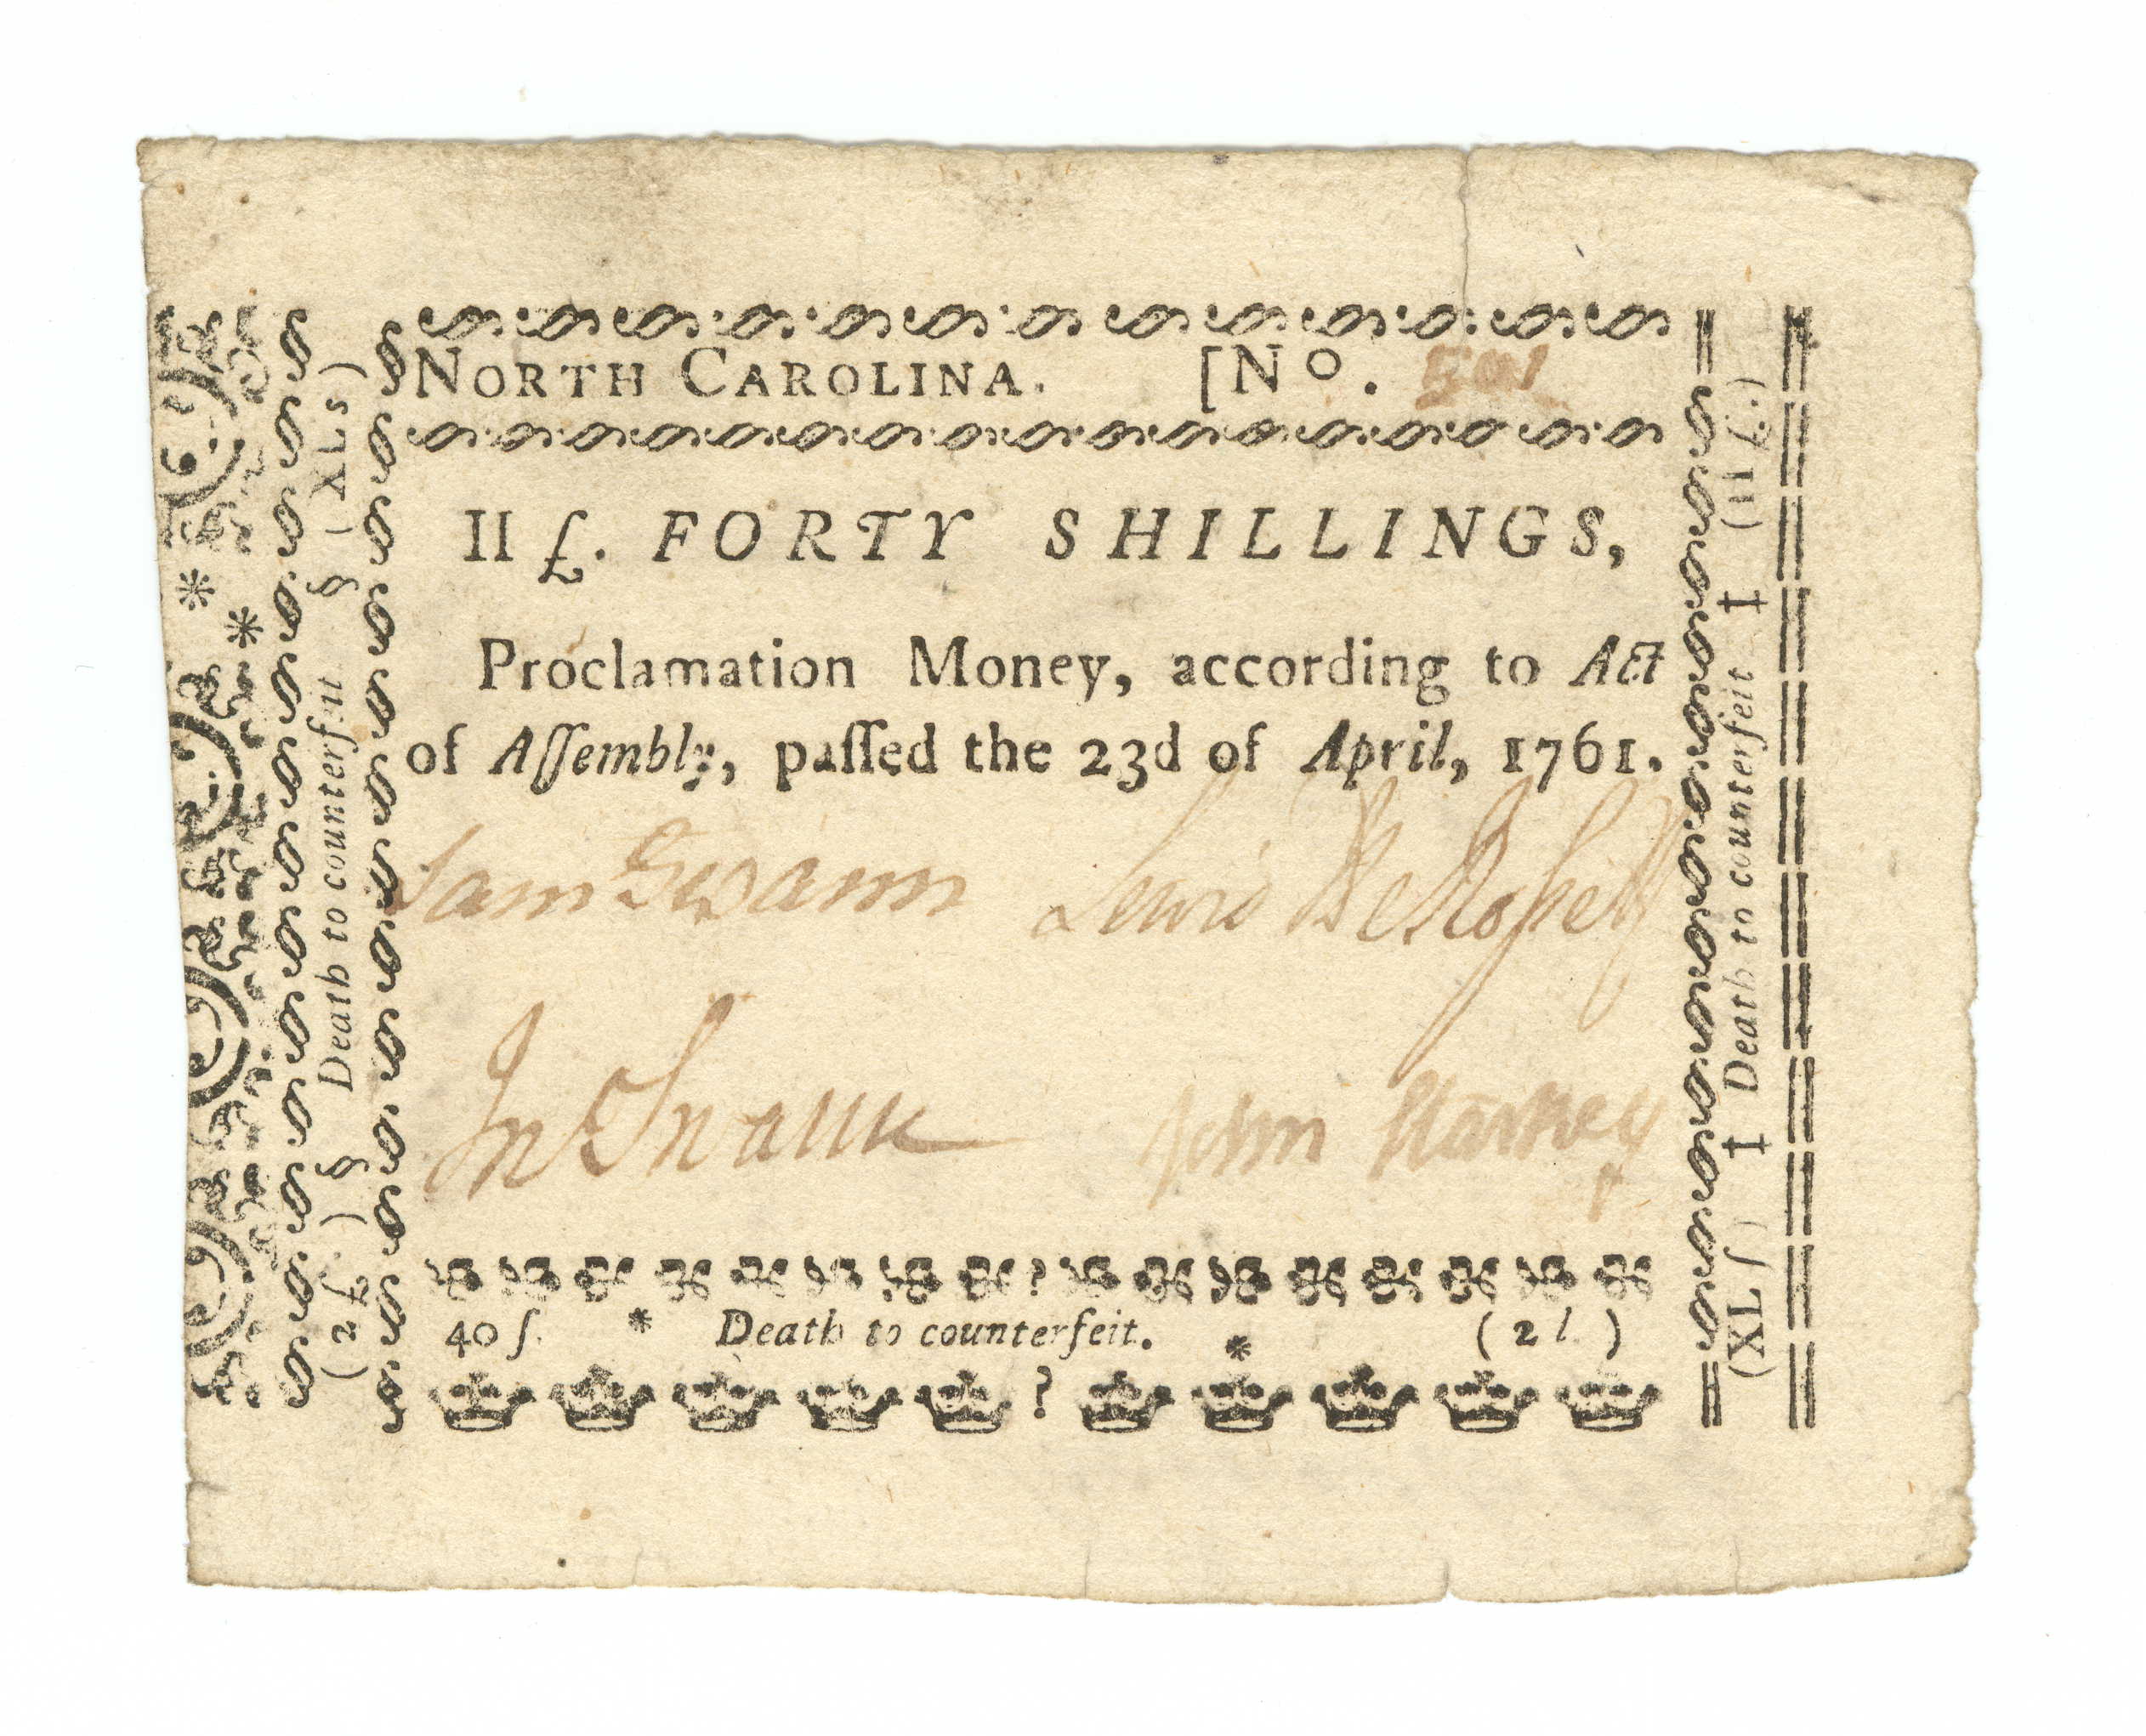 NORTH CAROLINA. [No. 501
II £. FORTY SHILLINGS,
Proclamation Money, according to Act
of Aſſembly, paſſed the 23d of April, 1761.
Sam Swann Lewis DeRosset
Jn Swann John Harvey
40 ſ. * Death to counterfeit. * (2 l.)
(2 £.) § Death to counterfeit § (XLs)
(XL ſ) ‡ Death to counterfeit ‡ (II £.)